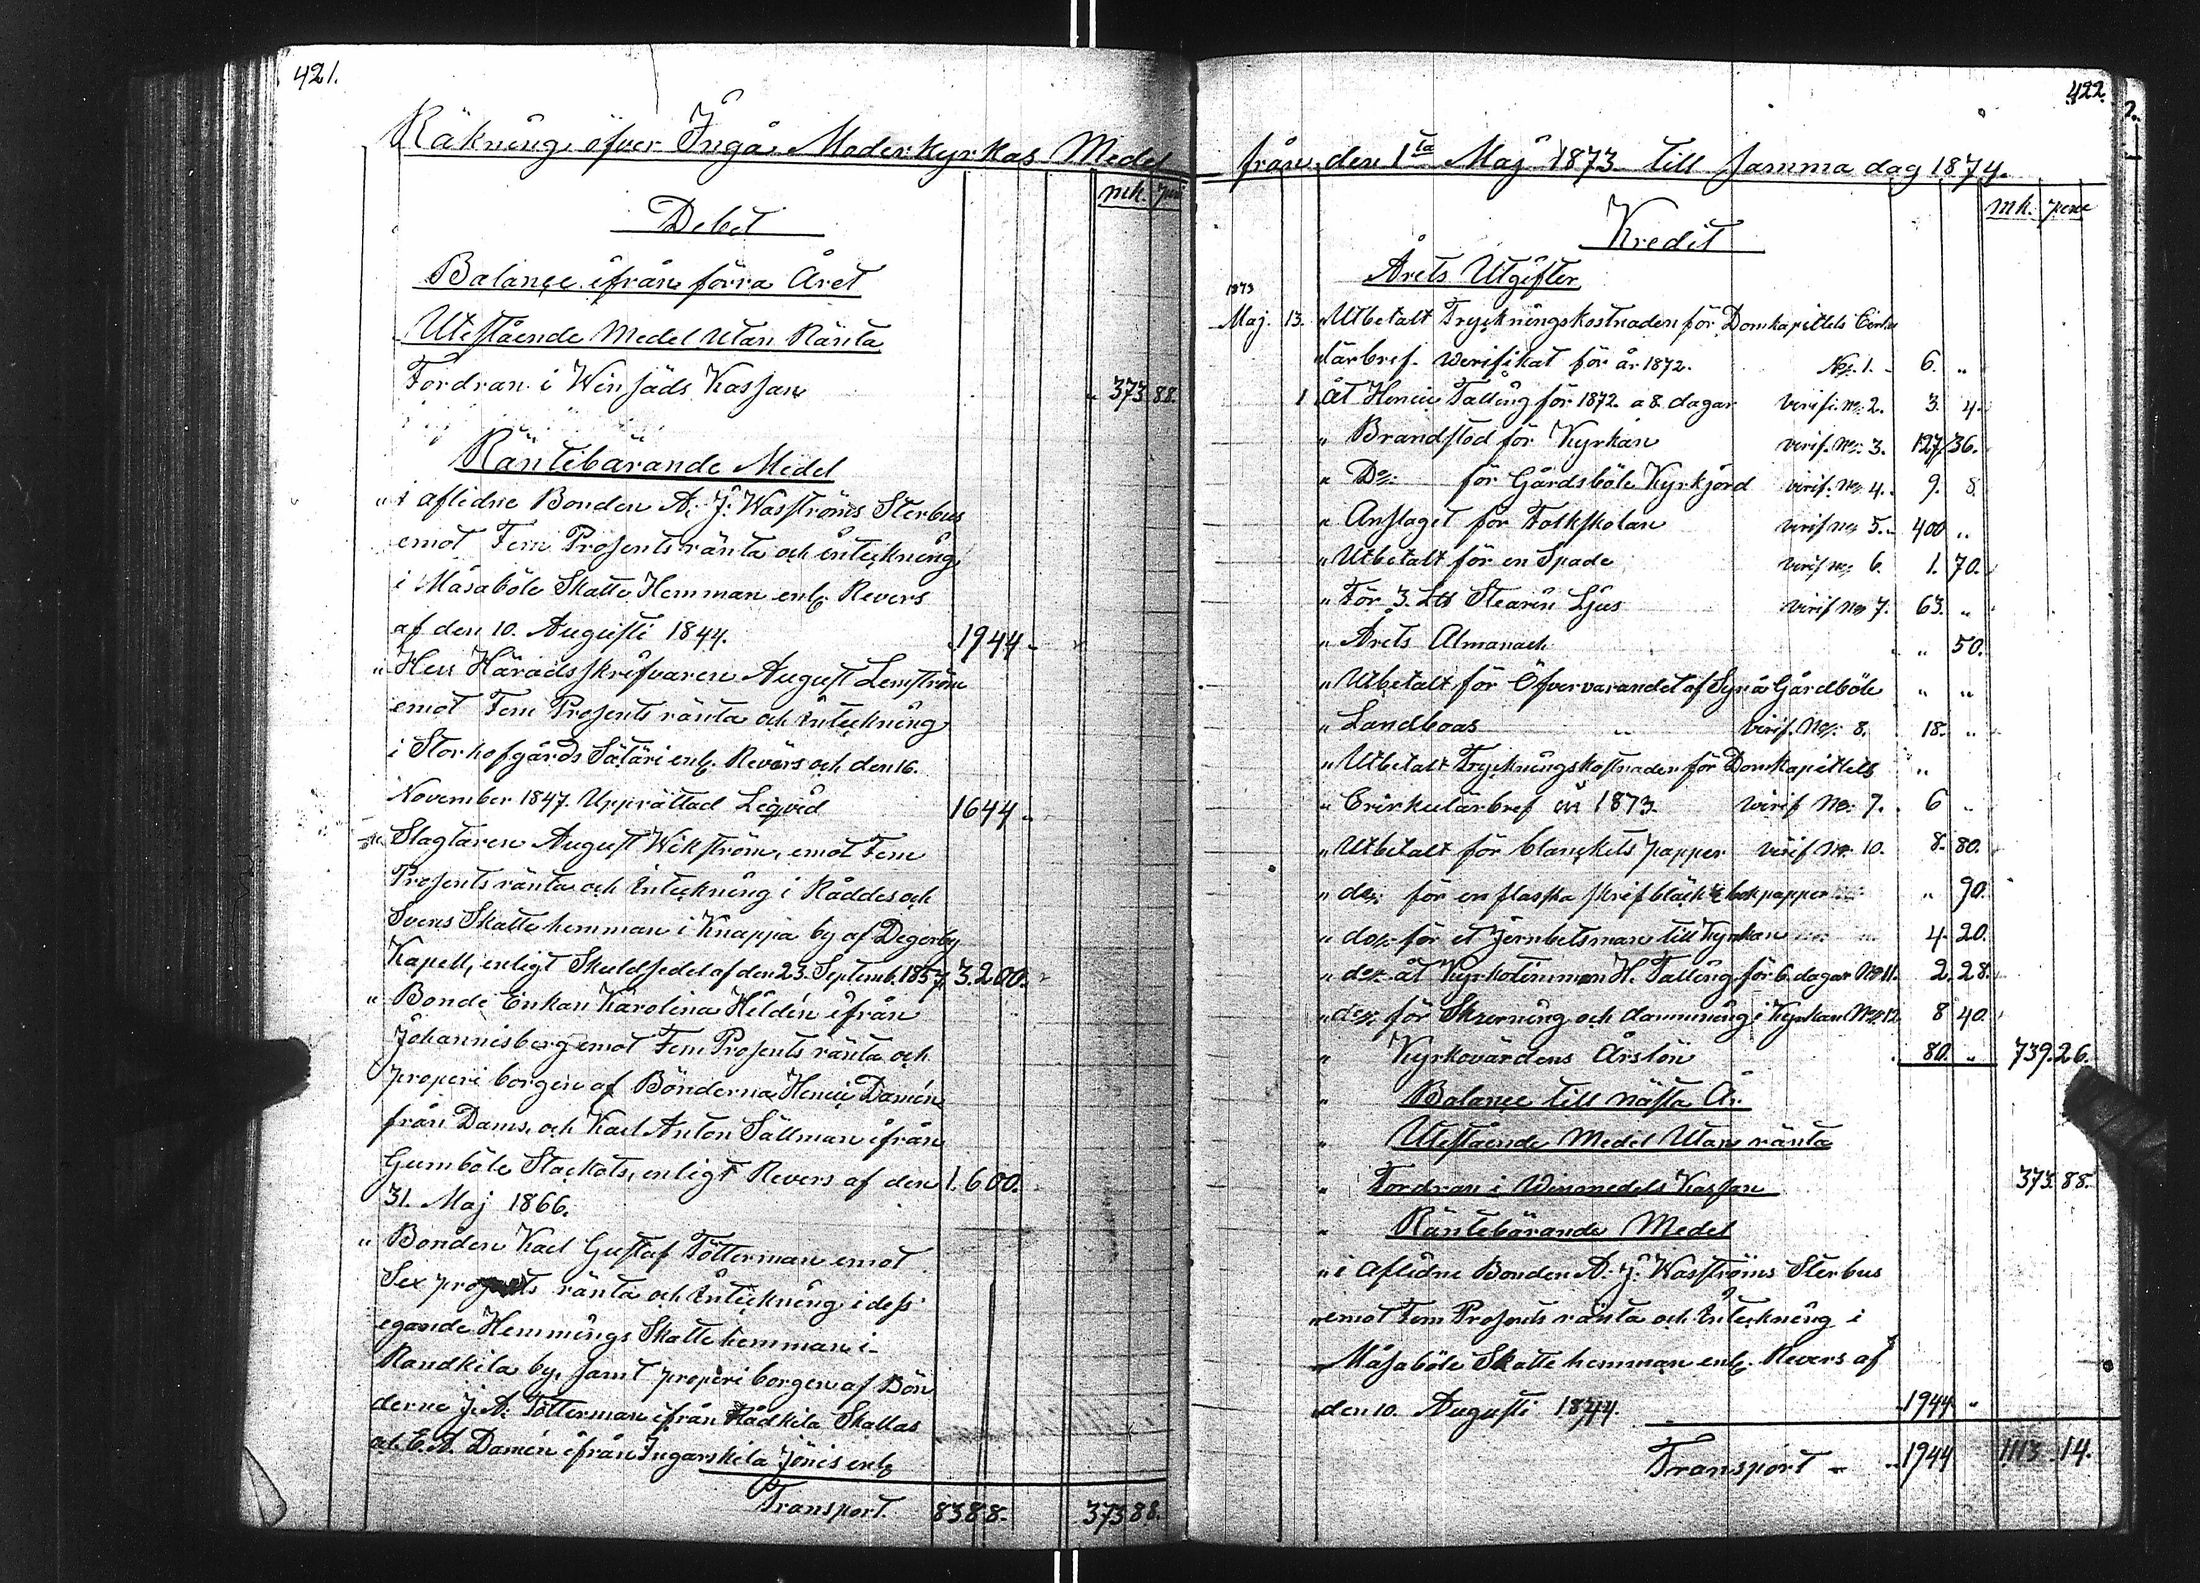 421.
Räkning öfver Ingå Moderkyrkas Medel
mk. pni
Debet
Balançe ifrån förra Året
Utestående Medel Utan Ränta
Fordran i Win säds Kassan 373 88.
Räntebärande Medel
" i aflidne Bonden A: J: Wasströms Sterbus
emot Fem Prosents ränta och inteckning
i Måsaböle Skatte Hemman enl. Revers
af den 10. Augusti 1844. 1944 "
" Herr Häradsskrifvaren August Lemström
emot Fem Prosents ränta och Inteckning
i Storhofgårds Säteri enl. Revers och den 16.
November 1847. Upprättad Leqvid 1644 "
" Slagtaren August Wikström, emot Fem
Prosents ränta och Inteckning i Råddes och
Svens Skatte hemman i Knappa by af Degerby
Kapell, enligt Skuldsedel af den 23. Septemb. 1857, 3.200. "
" Bonde Enkan Karolina Hildén ifrån
Johannisberg emot Fem Prosents ränta och
properi borgen af Bönderna Henric Damén
från Dams, och Karl Anton Sällman ifrån
Gumböle Stackots, enligt Revers af den 1.600.
31. Maj 1866.
" Bonden Karl Gustaf Tötterman emot
Sex prosents ränta och Inteckning i dess
egande Hemmings Skatte hemman i
Randkila by, samt properi borgen af Bön
derne J. A: Tötterman ifrån Rådkila Skallas
och E. A. Damén ifrån Ingarskila Jönis enlg
Transport. 8388. 373 88.
422.
från den 1ta Maj 1873 till samma dag 1874.
mk. penni
Kredit
Årets Utgifter
1873
Maj. 13. " Utbetalt Tryckningskostnaden för Domkapittels Cirku
" lärbref. verifikat för år 1872. No: 1. 6. "
1 " Åt Henric Talling för 1872. a 8. dagar verifi. No: 2. 3. 4.
" Brandstod för Kyrkan verif. No: 3. 127 36.
" Do: för Gårdsböle Kyrkjord verif. No: 4. 9. 8.
" Anslaget för Folkskolan verif No: 5. 400 "
" Utbetalt för en Spade verif No: 6. 1. 70.
" För 3. Stearin Ljus verif No 7. 63. "
" Årets Almanach " 50.
" Utbetalt för Öfvervarandet af Syn å Gårdböle " "
" Landboas " verif. No: 8. 18. "
" Utbetalt Tryckningskostnader för Domkapittels "
" Cirkulärbref 1873. verif No: 9. 6 "
" Utbetalt för blanckets papper verif No: 10. 8. 80.
" do: för en flaska skrifbläck papper " 90.
" do: för et Jernbetsman till Kyrkan 4. 20.
" do: åt Kyrkotimmen H. Talling för 6. dagar No: 11. 2. 28.
" do: för Skurning och damning i Kyrkan No: 12. 8 40.
" Kyrkovärdens Årslön 80. " 739. 26.
" Balançe till nästa År
" Utestående Medel Utan ränta
" Fordran i Winmedels Kassan 373. 88.
" Räntebärande Medel
" i Aflidne Bonden A: J: Wasströms Sterbus
" emot Fem Prosents ränta och Inteckning i
" Måsaböle Skatte hemman enl. Revers af
" den 10. Augusti 1844. 1944 "
Transport 1944 1113. 14.